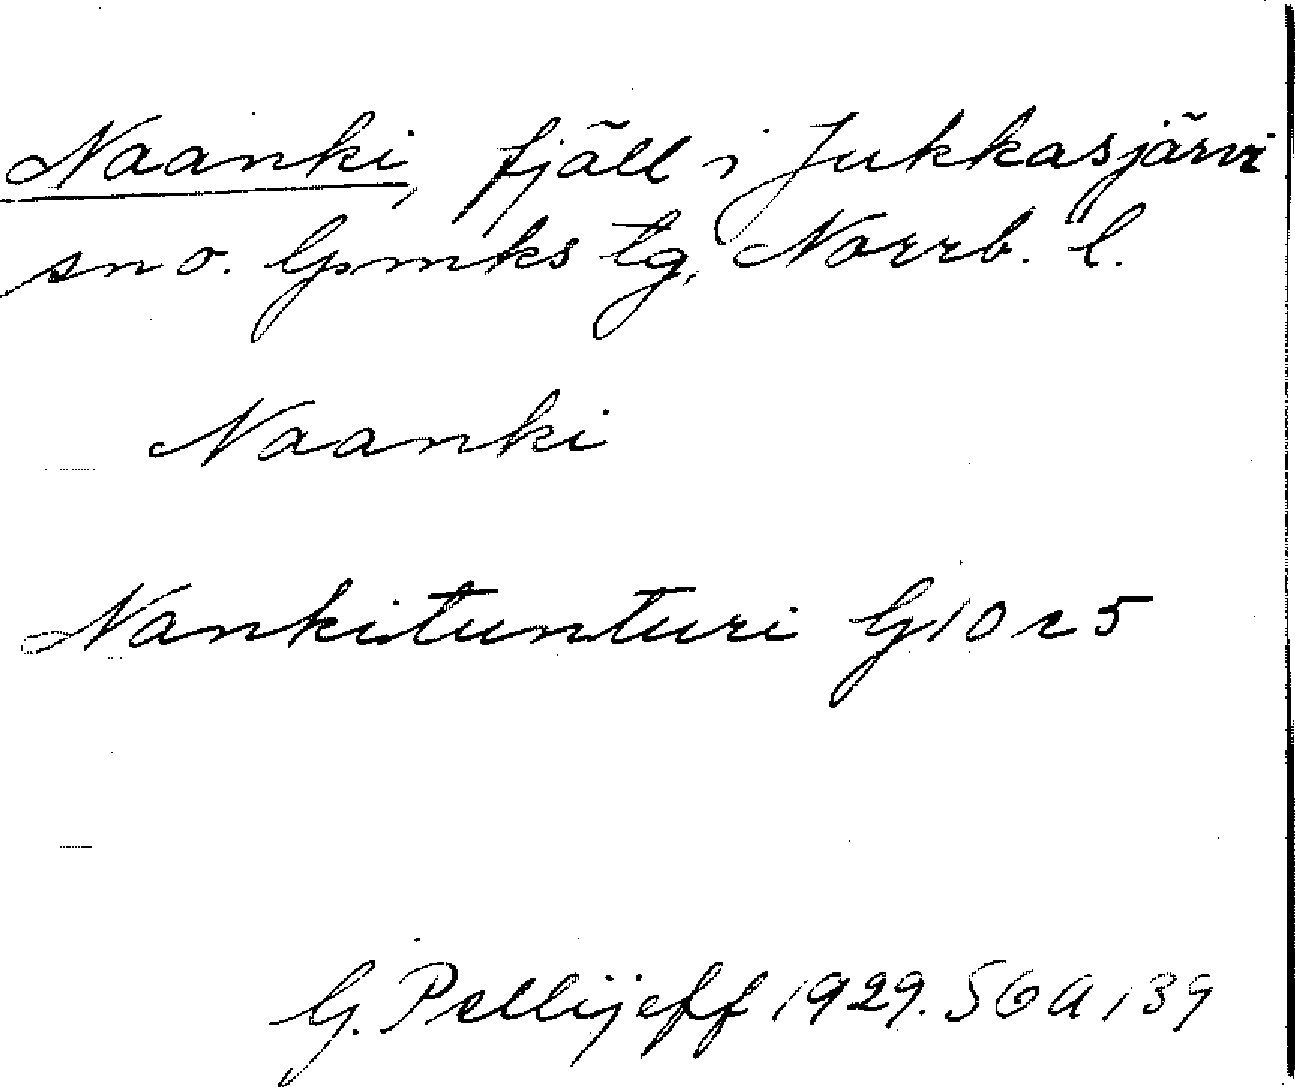 Naanki, fjäll i Jukkasjärvi
sn o. lpmks tg, Norrb. l.
Naanki
Nankitunturi G10r5
G. Pellijeff 1929. SGA 139